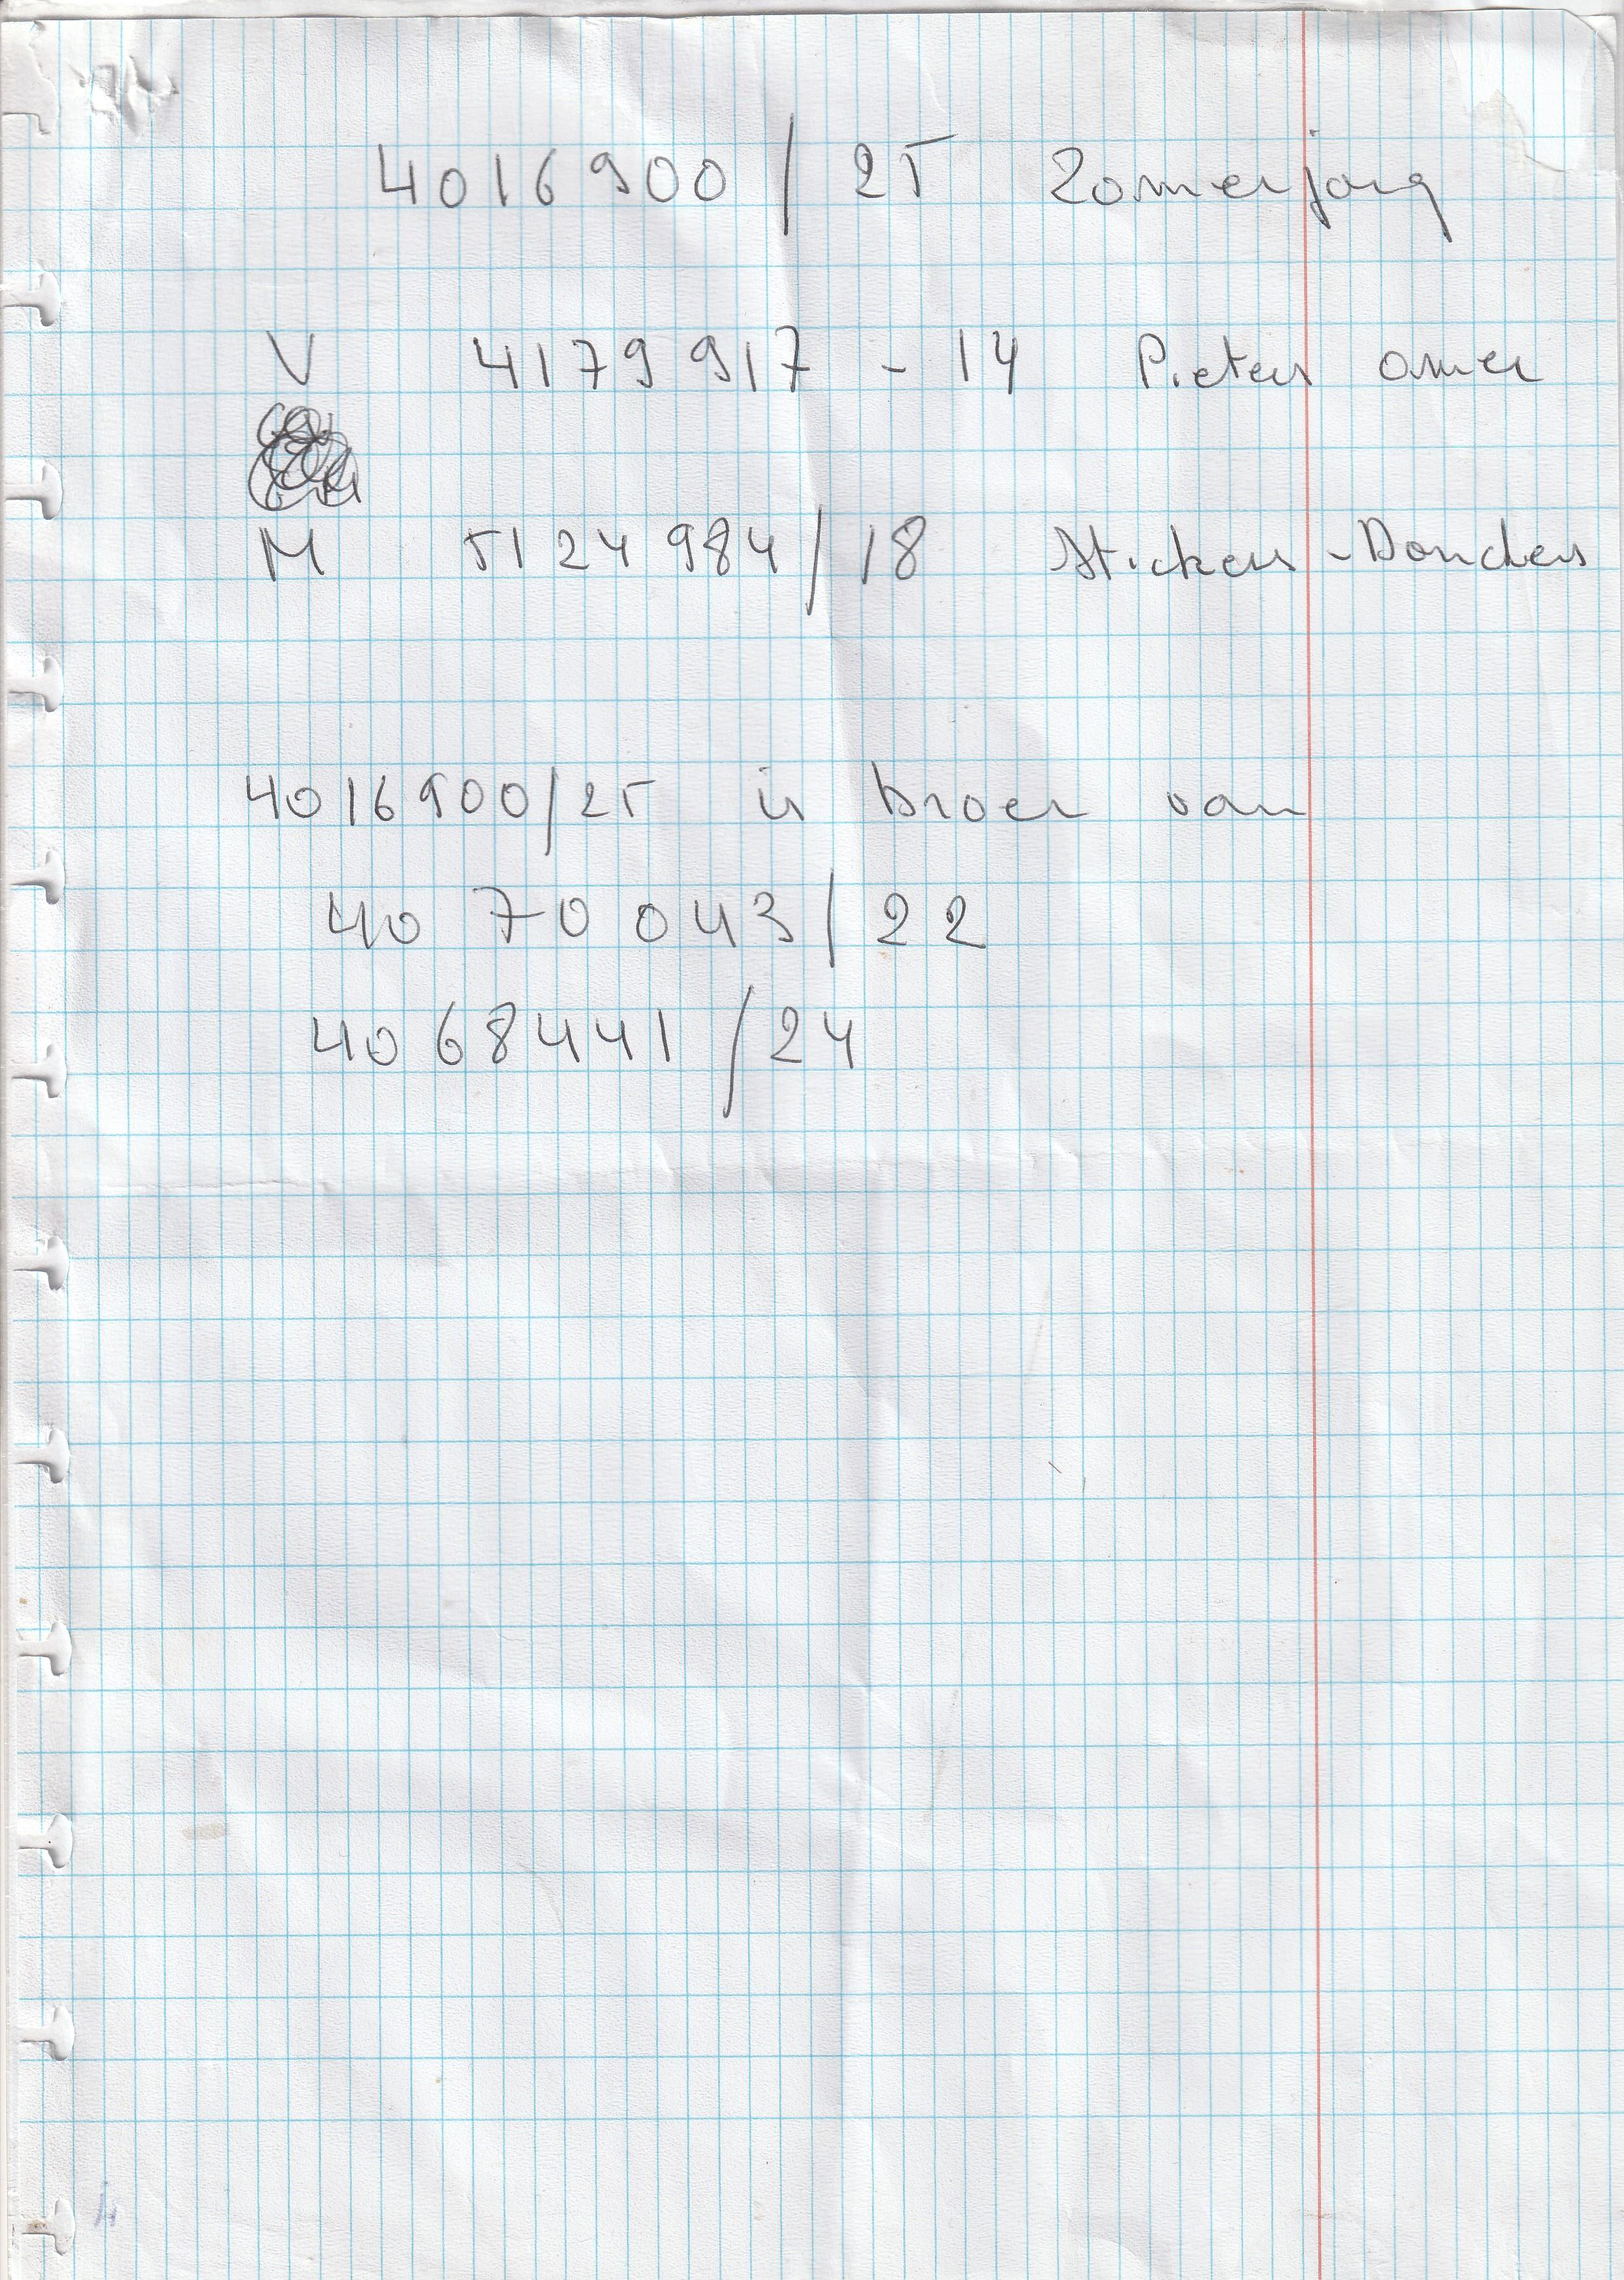 4016900 / 25 Zomerjong
V 4179917 - 14 Pieters omer
M 5124984 / 18 Stickers - Donckers
4016900/25 is broer van
40 70 043 / 22
40 68441 / 24